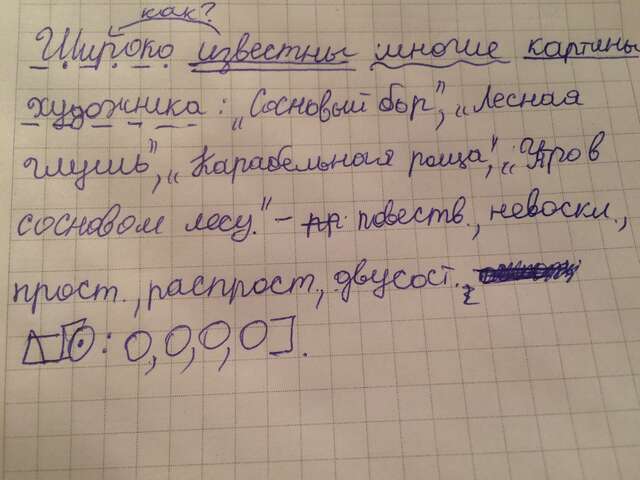 как?
Широко известны многие картины
художника: „Сосновый бор", „Лесная
глушь", „Карабельная роща", „Утро в
сосновом лесу." – повеств., невоскл.,
прост., распрост., двусост.,
[⊙: О, О, О, О].